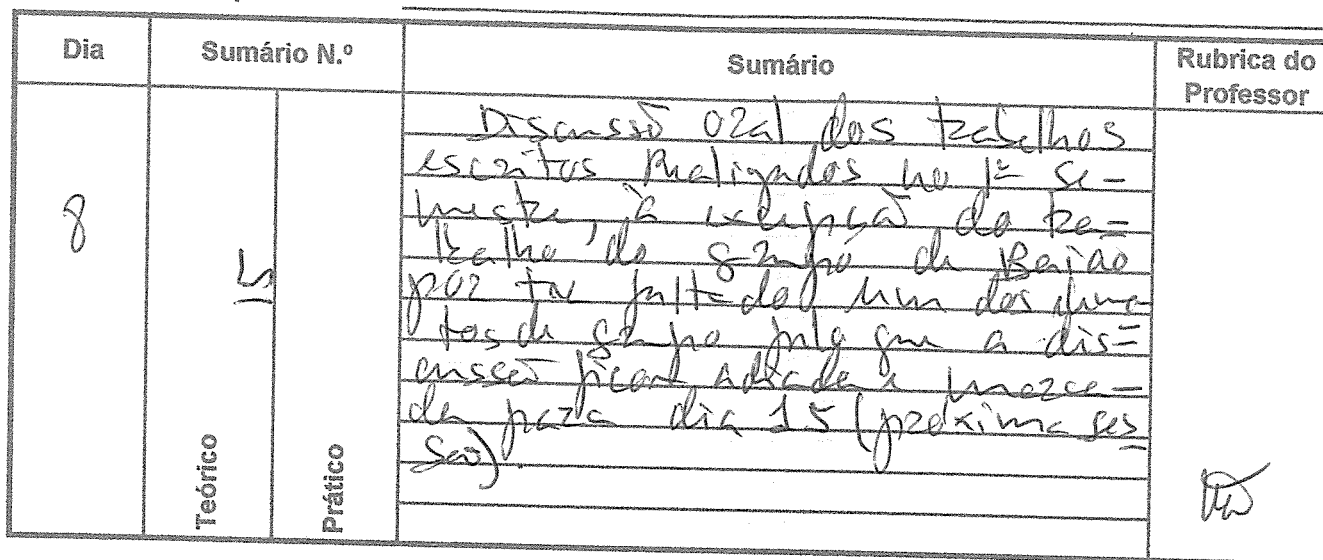 Dia
Sumário N.º
Sumário
Rubrica do
Professor
8
Teórico
Prático
Discussão oral dos trabalhos
escritos Realizados no 1º Se-
mestre, à excepção do tra=
balho do grupo de Baião
por ter faltado um dos
tos do grupo pelo que a dis=
cussão ficará adiada e marca-
da para dia 15 (próxima ses
são).